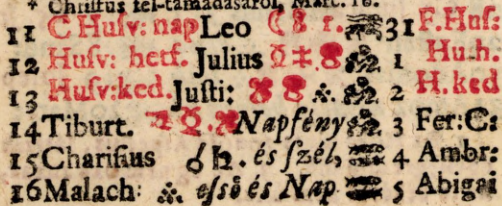 * Christus fel-támadásáról, Marc. 16.
11 C Huſv: nap Leo ☾ 8 r. 31 F. Huſ.
12 Huſv: hetf. Julius 1 Hu.h.
13 Huſv:ked. Juſti: 2 H. ked
14 Tiburt. Napfény 3 Fer:C:
15 Chariſius ☌ ♄. és ſzél, 4 Ambr:
16 Malach: eſső és Nap 5 Abigai